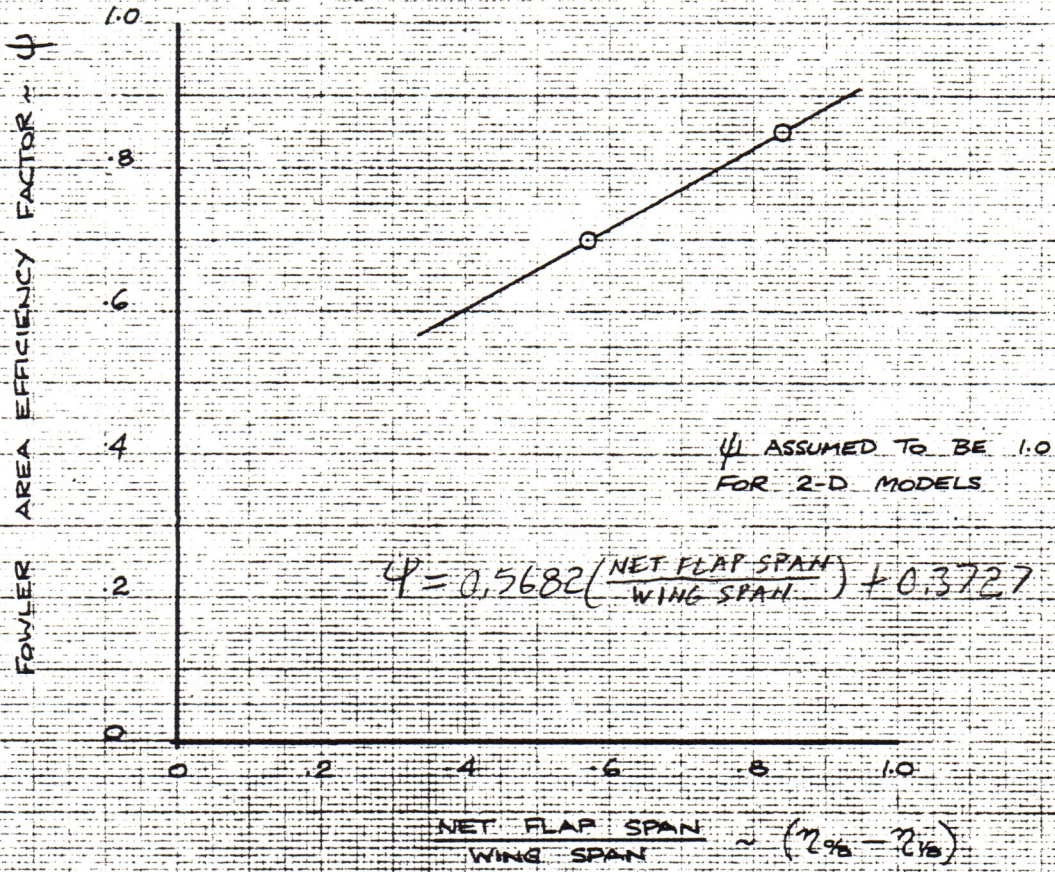 FOWLER AREA EFFICIENCY FACTOR ~ ψ
1.0
.8
.6
.4
.2
0
ψ ASSUMED TO BE 1.0
FOR 2-D MODELS
ψ = 0.5682 (NET FLAP SPAN / WING SPAN) + 0.3727
0 .2 .4 .6 .8 1.0
NET FLAP SPAN
WING SPAN ~ (η - η)